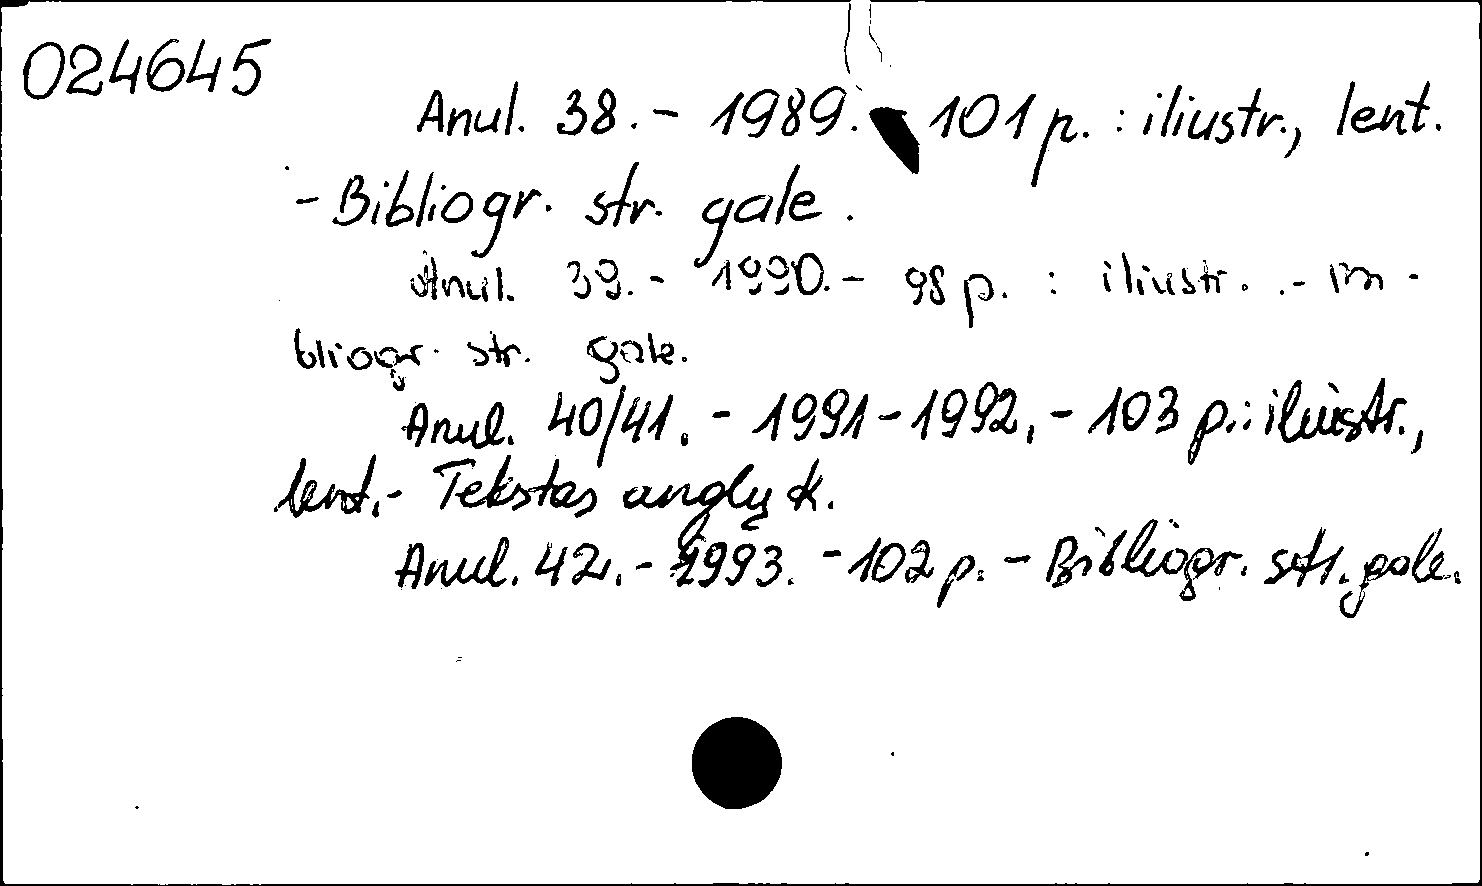 024645
Anul. 38. - 1989. - 101 p. : iliustr., lent.
- Bibliogr. str. gale.
Anul. 39. - 1990. - 98 p. : iliustr. . - Bi-
bliogr. str. gale.
Anul. 40/41. - 1991-1992. - 103 p.: iliustr.,
lent. - Tekstas anglų k.
Anul. 42. - 1993. - 102 p. - Bibliogr. str. gale.